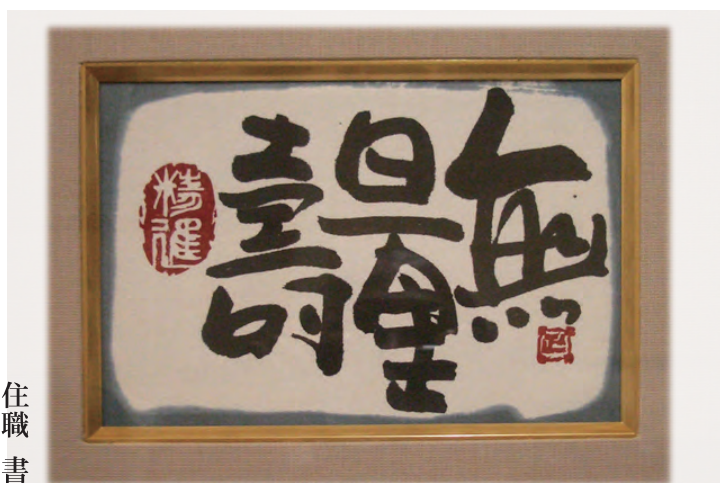 無量壽
精進
住職 書